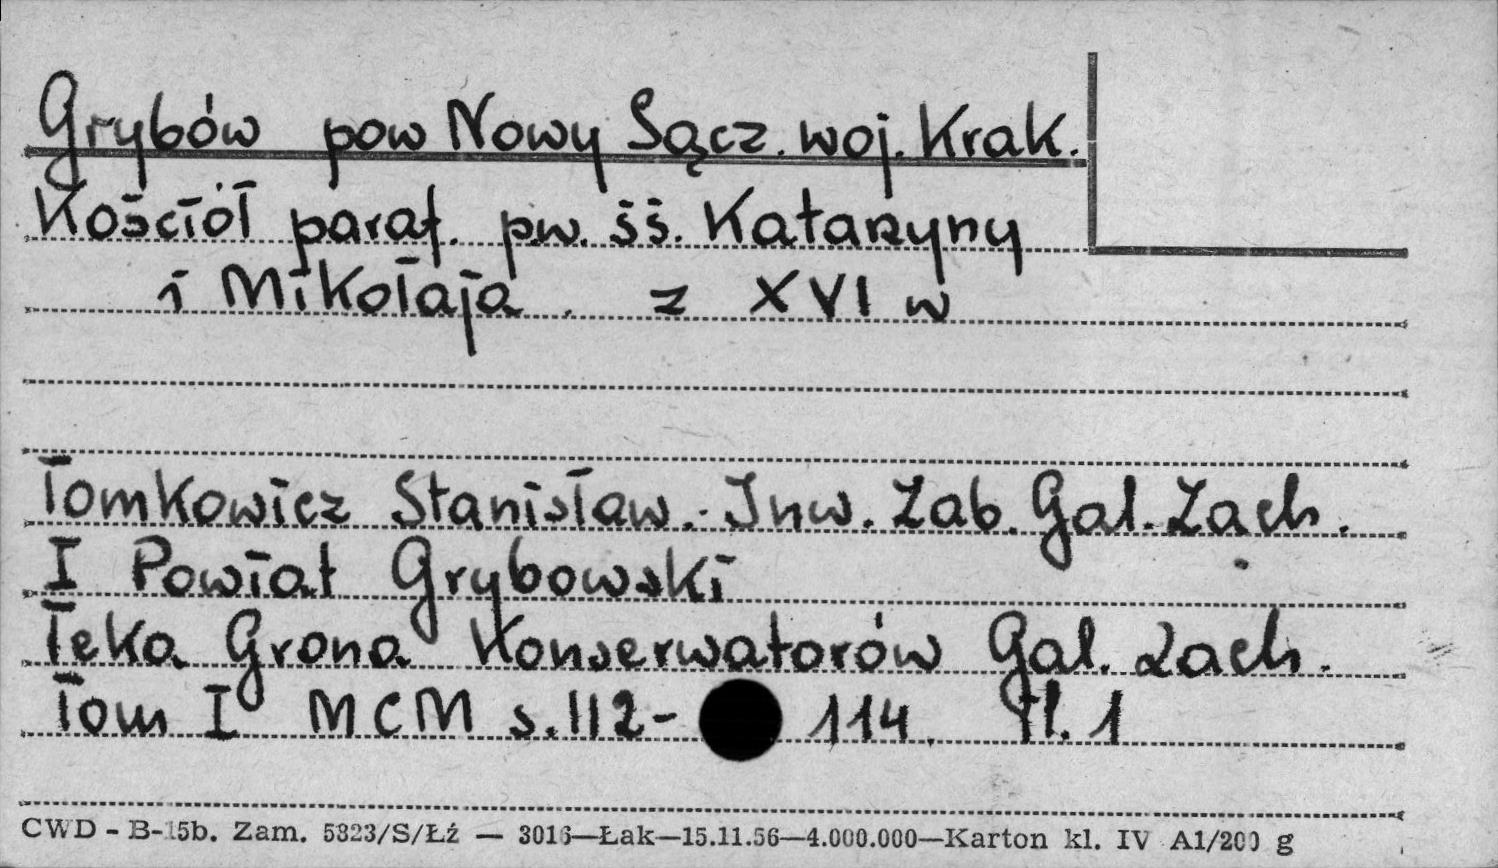 Grybów pow Nowy Sącz. woj. Krak.
Kościół paraf. pw. śś. Katarzyny
i Mikołaja. z XVI w
Tomkowicz Stanisław. Inw. Zab. Gal. Zach.
I Powiat Grybowski
Teka Grona Konserwatorów Gal. Zach.
Tom I MCM s. 112- 114. il. 1
CWD - B-15b. Zam. 5323/S/Łź — 3016—Łak—15.11.56—4.000.000—Karton kl. IV A1/200 g